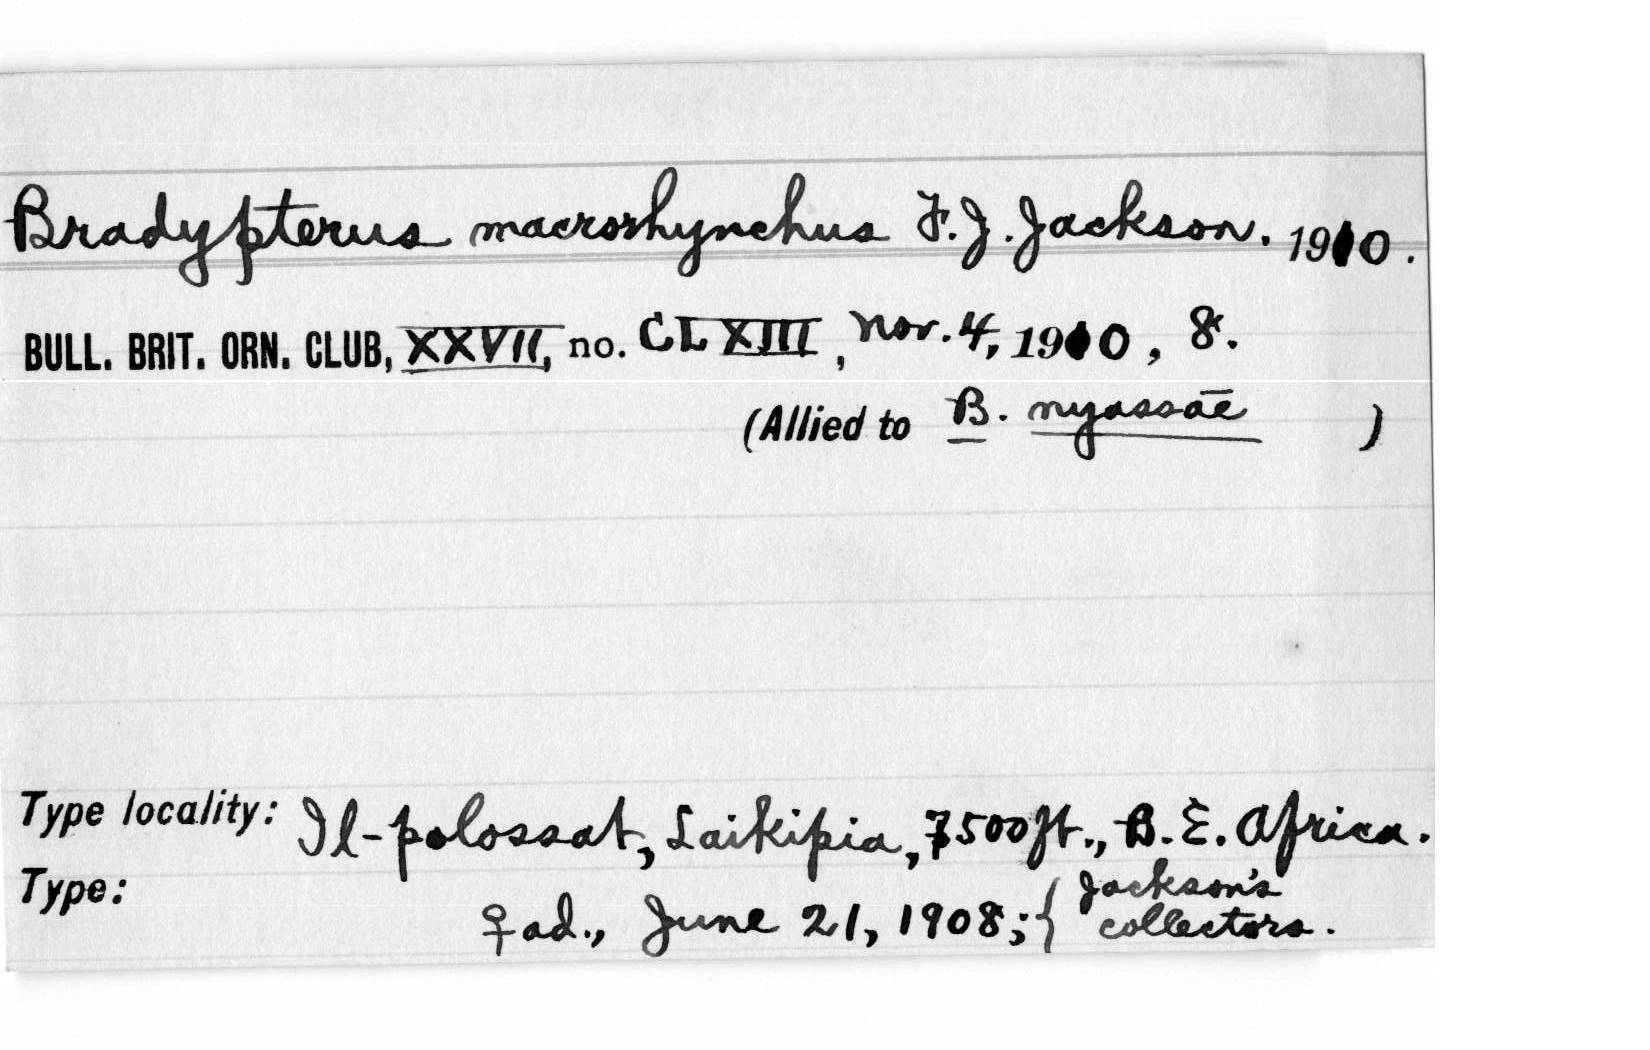 Bradypterus macrorhynchus F. J. Jackson. 1910.
BULL. BRIT. ORN. CLUB, XXVII, no. CLXIII, Nov. 4, 1910, 8.
(Allied to B. nyassae )
Type locality: Il-polossat, Laikipia, 7500 ft., B. E. Africa.
Type: ♀ ad., June 21, 1908; { Jackson's
collectors.